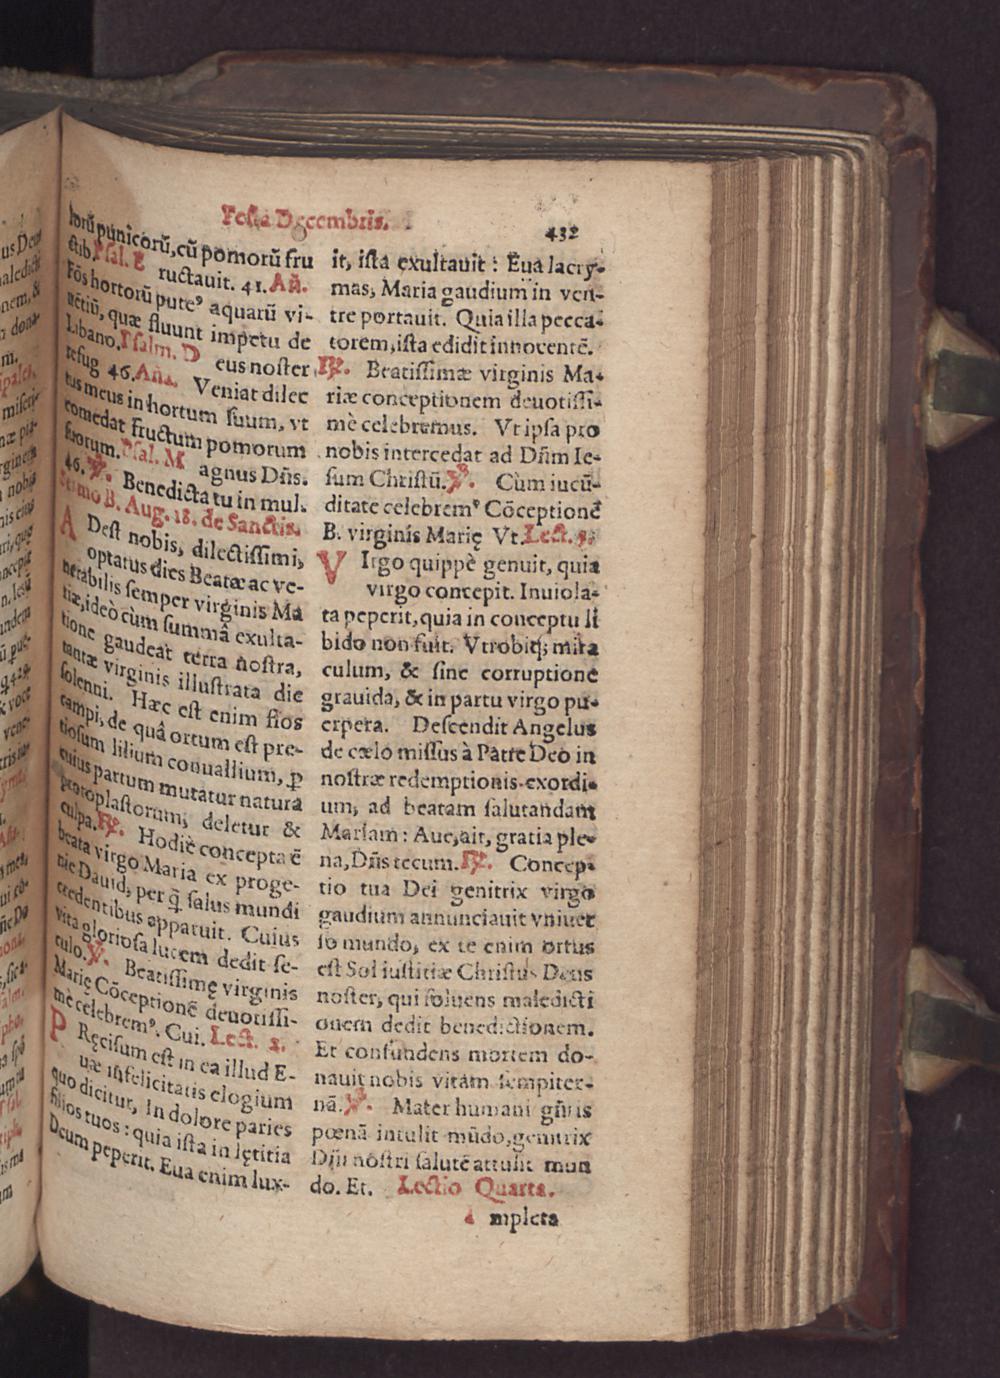 Festa Decembris.
432
lorũ punicorũ, cũ pomorũ fru
ctib. Psal. E ructauit. 41. Añ.
Fõs hortorũ pute⁹ aquarũ vi-
uẽtiũ, quæ fluunt impetu de
Libano. Psalm. D eus noster
refug 46. Aña. Veniat dilec
tus meus in hortum suum, vt
comedat fructum pomorum
suorum. Psal. M agnus Dñs.
46. ℣. Benedicta tu in mul.
Sermo B. Aug. 18. de Sanctis.
A Dest nobis, dilectissimi,
optatus dies Beatæ ac ve-
nerabilis semper virginis Ma
riæ, ideò cùm summâ exulta-
tione gaudeat terra nostra,
tantæ virginis illustrata die
solenni. Hæc est enim flos
campi, de quâ ortum est pre-
tiosum lilium conuallium, ꝑ
cuius partum mutatur natura
protoplastorum, deletur &
culpa. ℟. Hodiè concepta ẽ
beata virgo Maria ex proge-
nie Dauid, per q̃ salus mundi
credentibus apparuit. Cuius
vita gloriosa lucem dedit se-
culo. ℣. Beatissimę virginis
Marię Cõceptionẽ deuotissi-
mè celebrem⁹. Cui. Lect. 2.
P Ręcisum est in ea illud E-
uæ infelicitatis elogium
quo dicitur, In dolore paries
filios tuos: quia ista in lętitia
Deum peperit. Eua enim lux-
it, ista exultauit: Eua lacry-
mas, Maria gaudium in ven-
tre portauit. Quia illa pecca-
torem, ista edidit innocentẽ.
℟. Beatissimæ virginis Ma-
riæ conceptionem deuotissi-
mè celebremus. Vt ipsa pro
nobis intercedat ad Dñm Ie-
sum Christũ. ℣. Cùm iucũ-
ditate celebrem⁹ Cõceptionẽ
B. virginis Marię Vt. Lect. 3.
V Irgo quippè genuit, quia
virgo concepit. Inuiola-
ta peperit, quia in conceptu li
bido non fuit. Vtrobiq; mira
culum, & sine corruptione
grauida, & in partu virgo pu-
erpera. Descendit Angelus
de cælo missus à Patre Deo in
nostræ redemptionis exordi-
um, ad beatam salutandam
Mariam: Aue, ait, gratia ple-
na, Dñs tecum. ℟. Concep-
tio tua Dei genitrix virgo
gaudium annunciauit vniuer
so mundo, ex te enim ortus
est Sol iustitiæ Christus Deus
noster, qui soluens maledicti
onem dedit benedictionem.
Et confundens mortem do-
nauit nobis vitam sempiter-
nã. ℣. Mater humani gñris
pœnã intulit mũdo, genitrix
Dñi nostri salutẽ attulit mun
do. Et. Lectio Quarta.
I mpleta